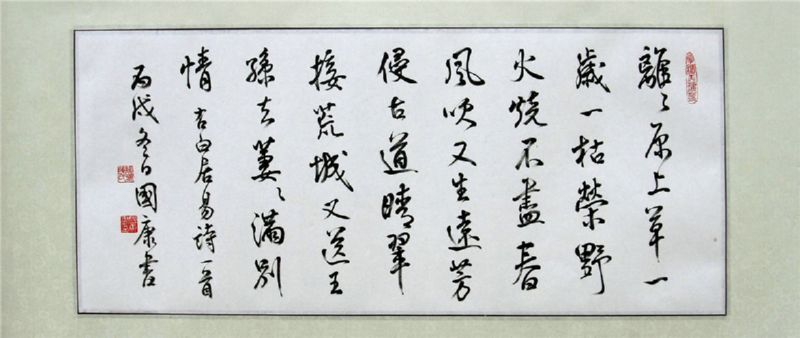 離〻原上草一
歲一枯榮野
火燒不盡春
風吹又生遠芳
侵古道晴翠
接荒城又送王
孫去萋〻滿別
情 白居易詩一首
丙戌冬日國康書